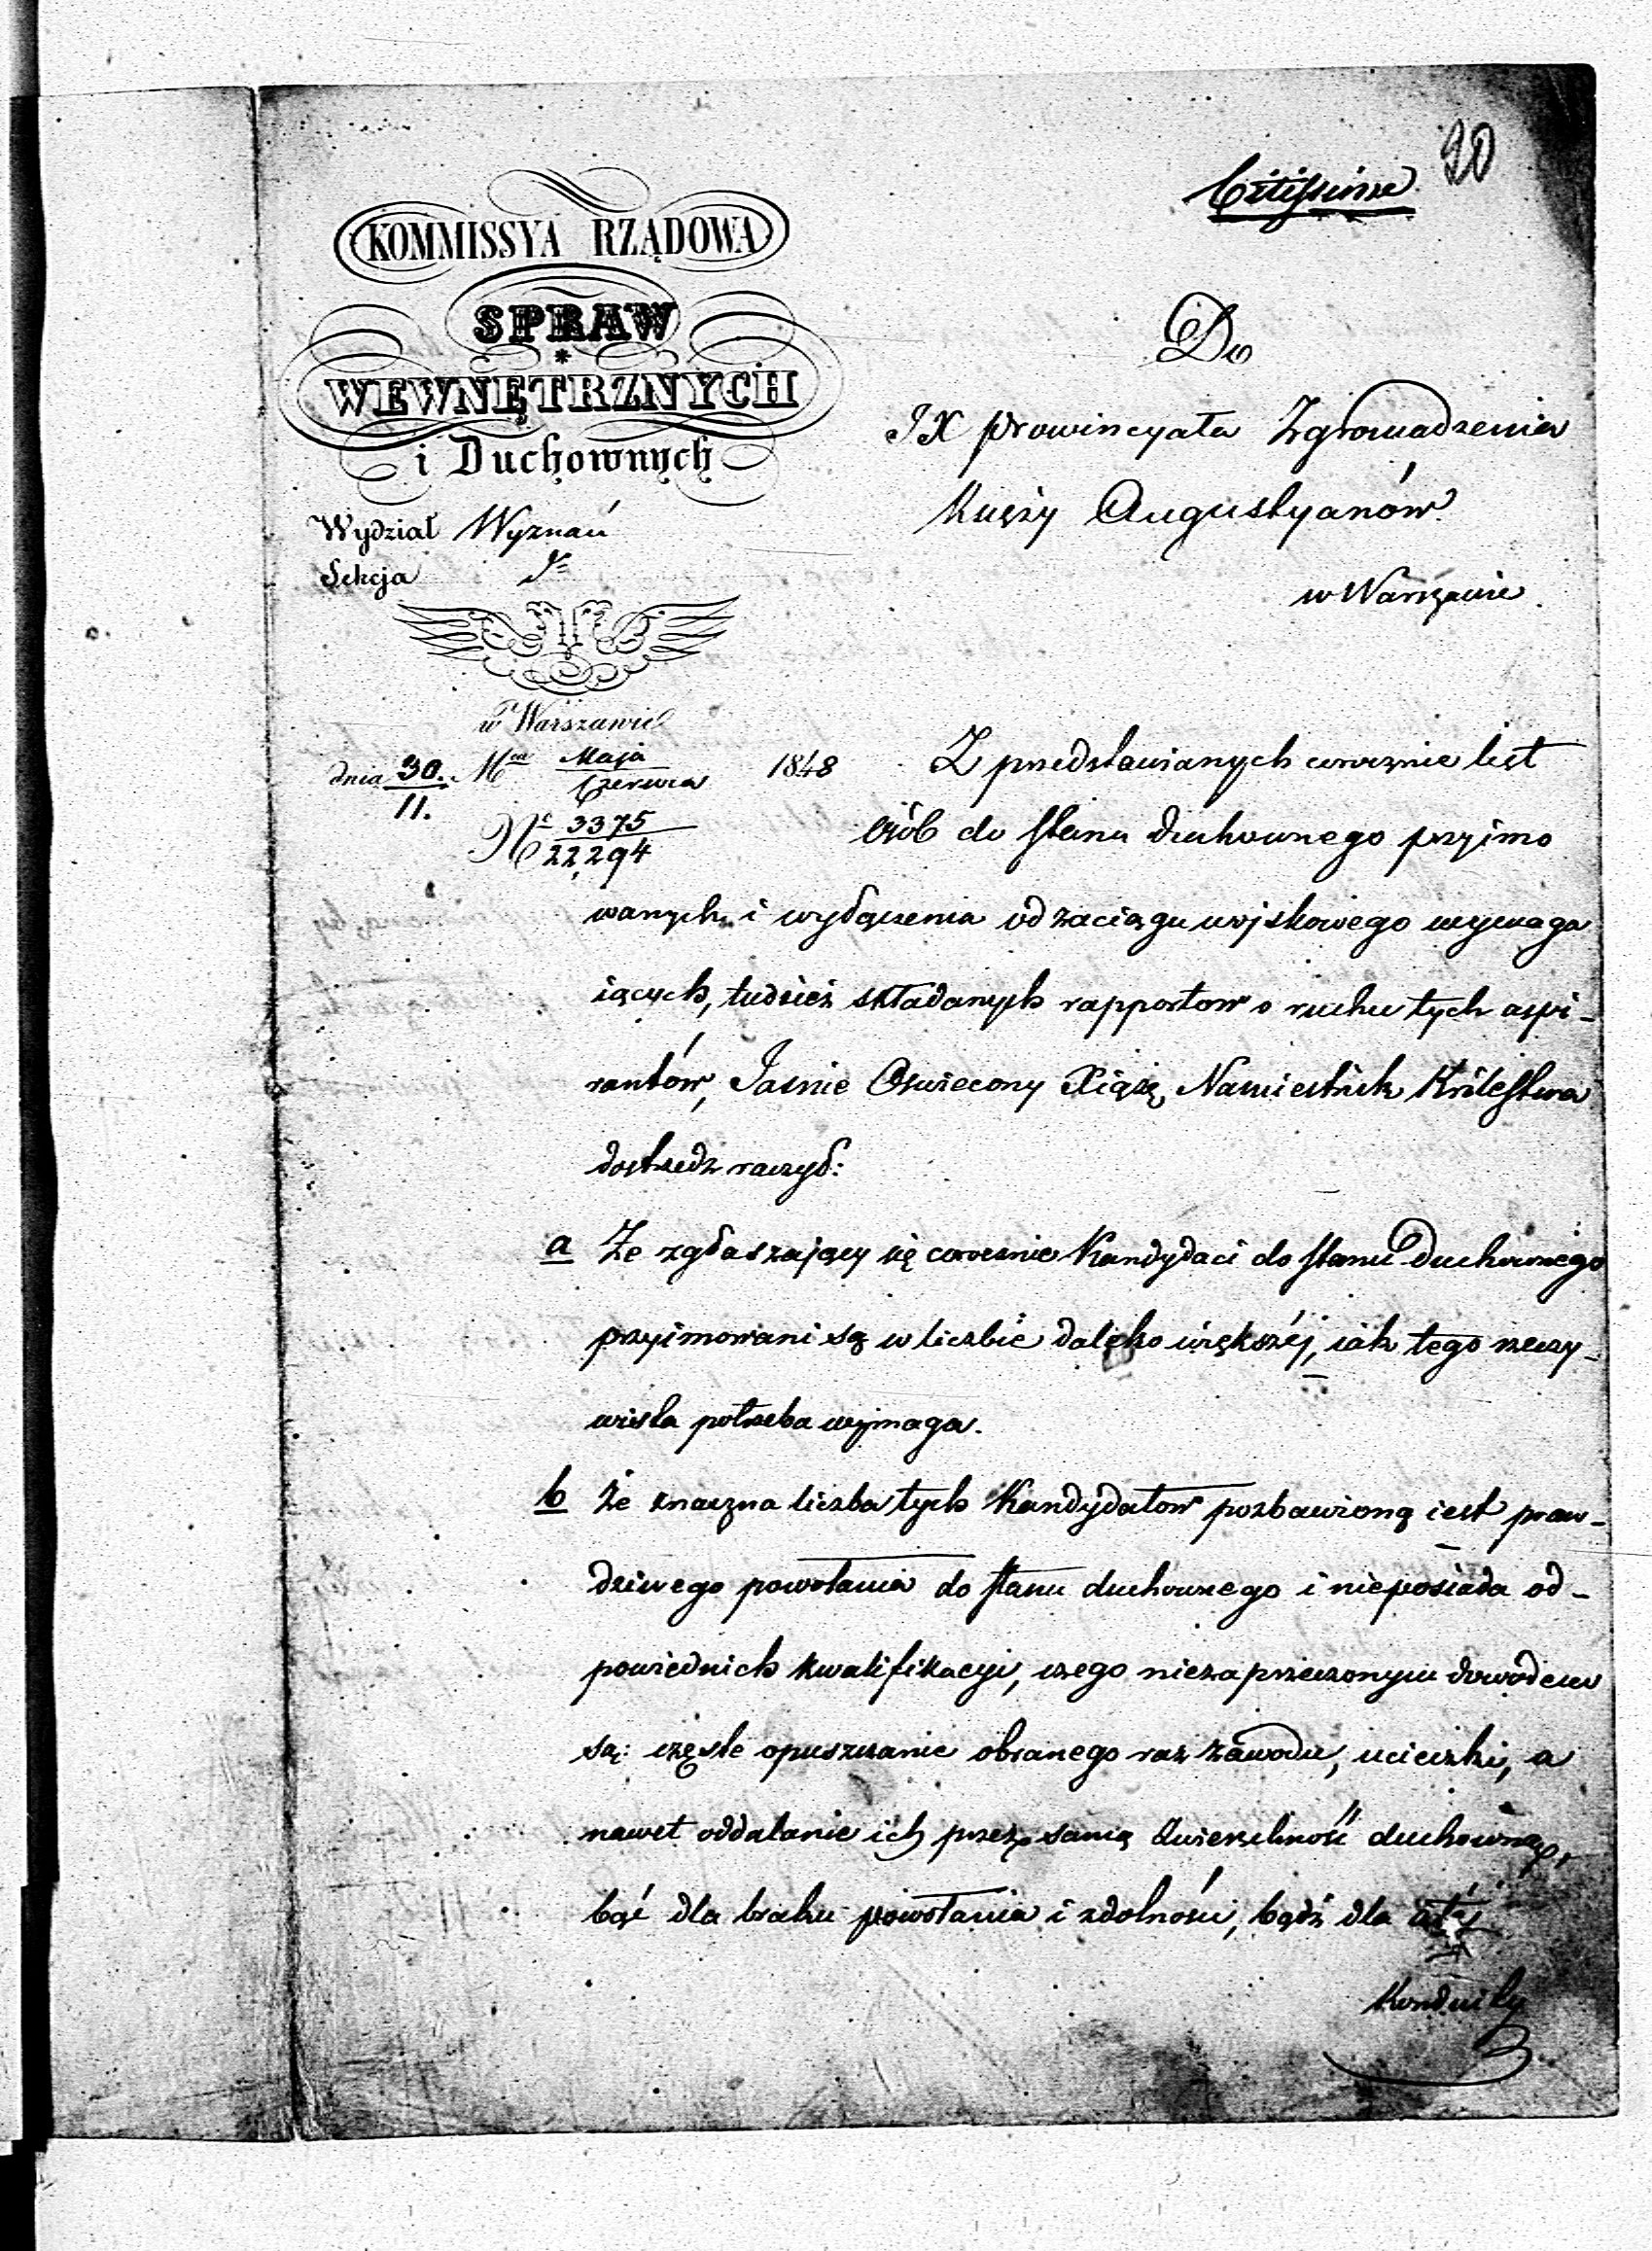 20
Citissime
KOMMISSYA RZĄDOWA
SPRAW
WEWNĘTRZNYCH
i Duchownych
Wydział Wyznań
Sekcja
w Warszawie
dnia 30./11. Mca Maja/Czerwca 1848
No 3375/22,294
Do
JX Prowincyała Zgromadzenia
Xięży Augustyanów
w Warszawie
Z przedstawianych corocznie list
osób do stanu duchownego przyimo
wanych i wyłączenia od zaciągu wojskowego wymaga
iących, tudzież składanych rapportow o ruchu tych aspi-
rantów, Jaśnie Oświecony Xiążę Namiestnik Królestwa
dostrzedz raczył:
a Że zgłaszający się corocznie Kandydaci do stanu duchownego
przyimowani są w liczbie daleko większéj, iak tego rzeczy-
wista potrzeba wymaga.
b Że znaczna liczba tych Kandydatow pozbawioną iest praw-
dziwego powołania do stanu duchownego i nieposiada od-
powiednich kwalifikacyi, czego niezaprzeczonym dowodem
są: częste opuszczanie obranego raz zawodu, ucieczki, a
nawet oddalanie ich przez samą Zwierzchność duchowną,
bąć dla braku powołania i zdolności, bądź dla
Konduity